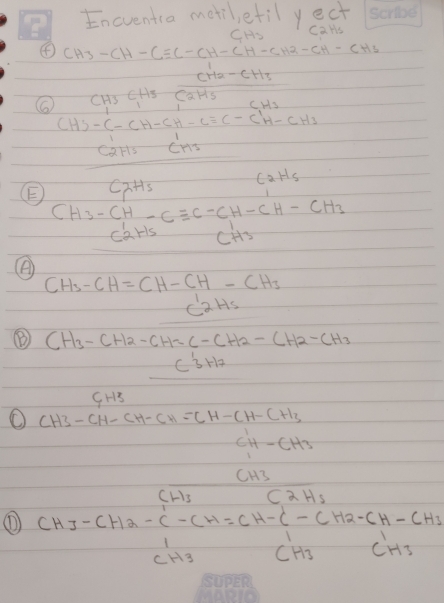 ?
Encuentra motil, etil y ect
Scribe
CH3 C2H5
F CH3 - CH - C≡C - CH - CH - CH2 - CH - CH3
CH2 - CH3
CH3 CH3 C2H5 CH3
G CH3 - C - CH - CH - C≡C - CH - CH3
C2H5 CH3
C2H5 C2H5
E CH3 - CH - C≡C - CH - CH - CH3
C2H5 CH3
A
CH3 - CH = CH - CH - CH3
C2H5
B CH3 - CH2 - CH = C - CH2 - CH2 - CH3
C3H2
CH3
C CH3 - CH - CH - CH = CH - CH - CH3
CH - CH3
CH3
CH3 C2H5
D CH3 - CH2 - C - CH = CH - C - CH2 - CH - CH3
CH3 CH3 CH3
SUPER
MARIO